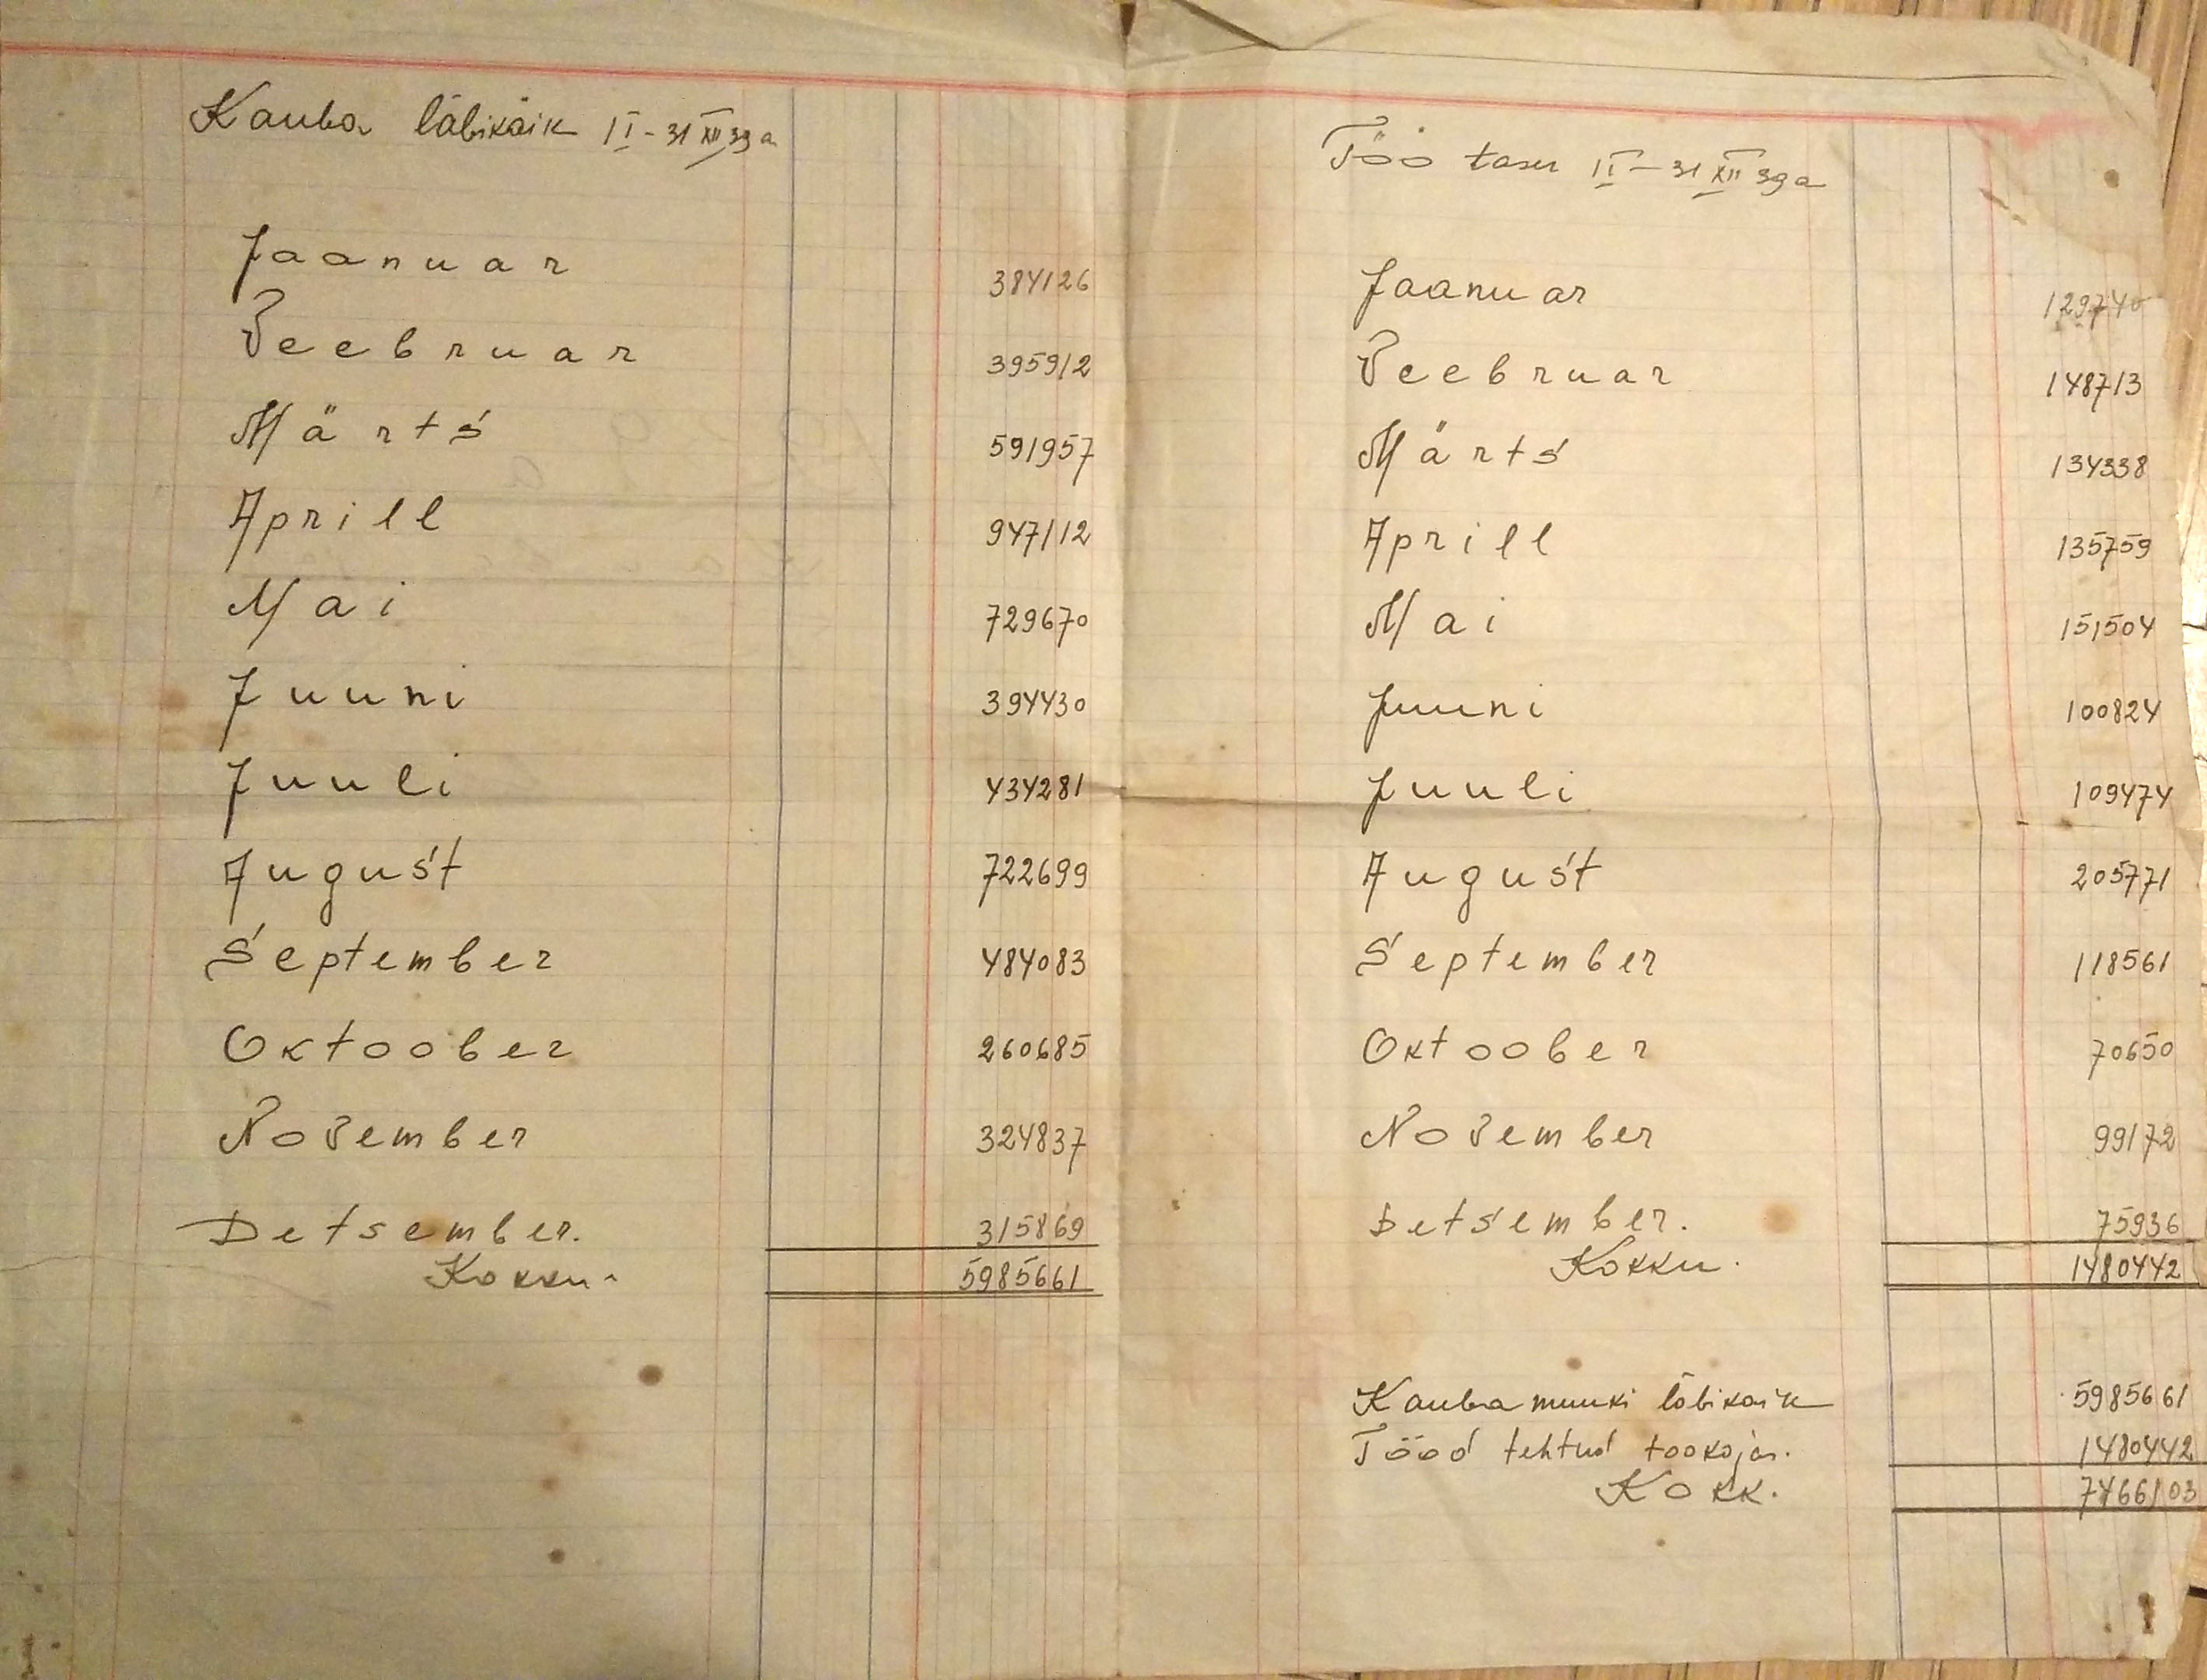 Kauba läbikäik 1 I - 31 XII 39 a
Jaanuar 384126
Veebruar 395912
Märts 591957
Aprill 947112
Mai 729670
Juuni 394430
Juuli 434281
August 722699
September 484083
Oktoober 260685
November 324837
Detsember. 315869
Kokku - 5985661
Töö tasu 1 I - 31 XII 39 a
Jaanuar 129740
Veebruar 148713
Märts 134338
Aprill 135759
Mai 151504
Juuni 100824
Juuli 109474
August 205771
September 118561
Oktoober 70650
November 99172
Detsember. 75936
Kokku. 1480442
Kauba muuki läbikaik 5985661
Tööd tehtud tookojas. 1480442
Kokk. 7466103